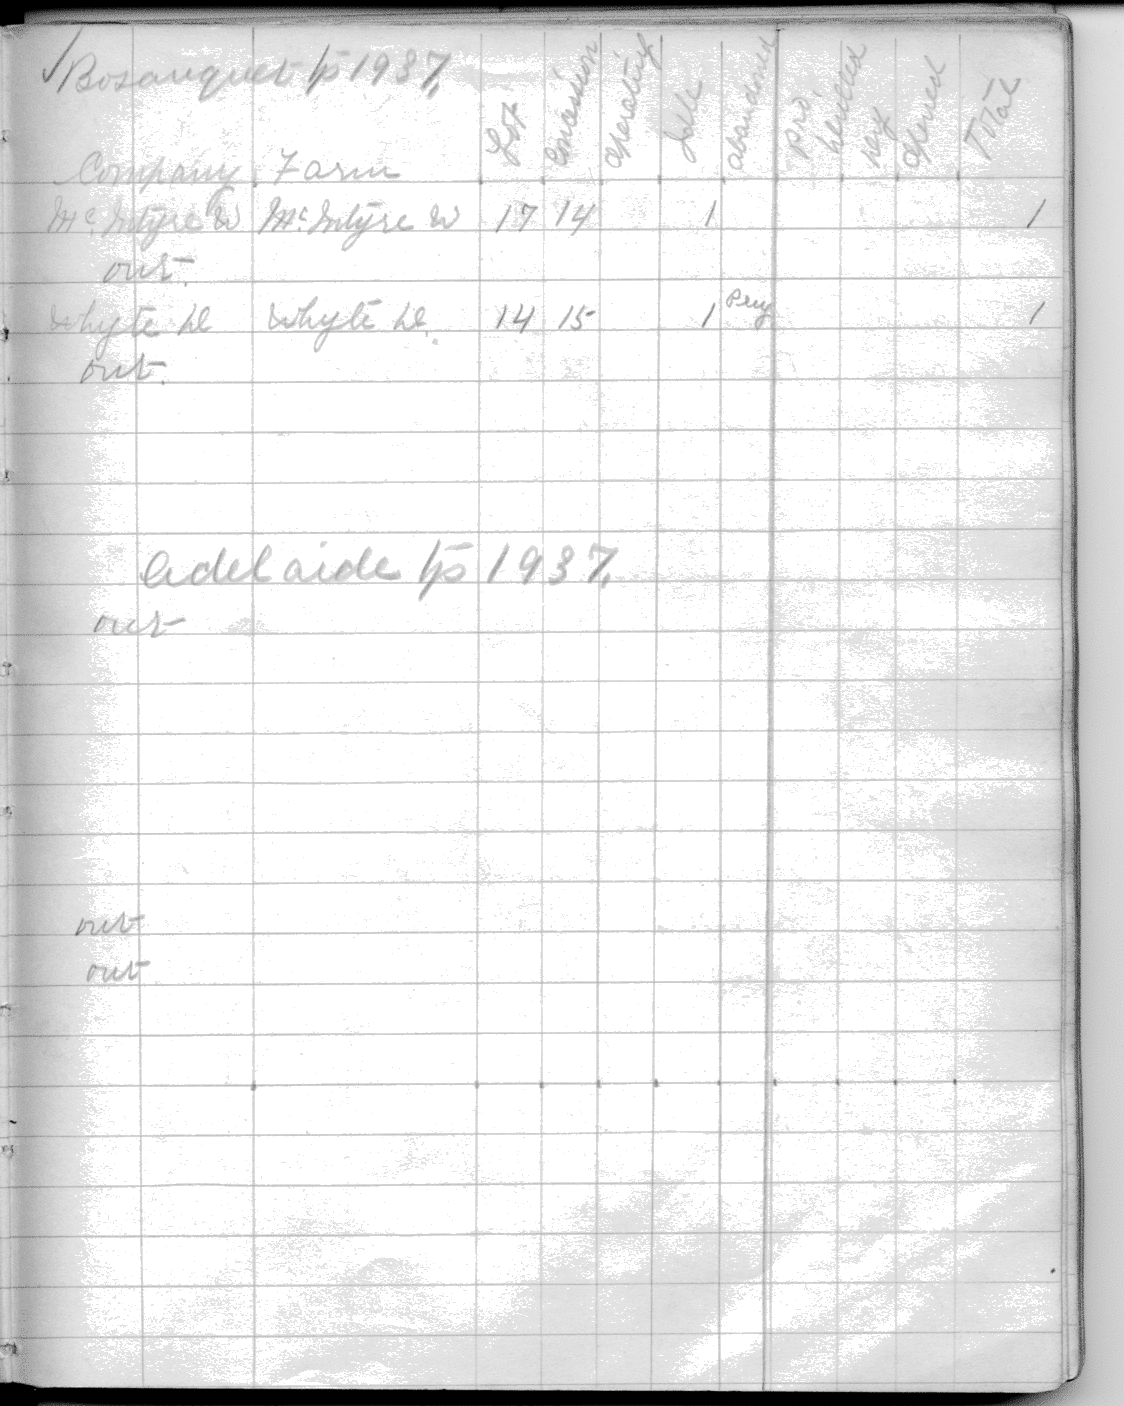 ✓ Bosanquet tp 1937,
Company Farm Lot Concession Operating Idle abandoned Total
McIntyre W McIntyre W 17 14 1 1
out.
Whyte D Whyte D. 14 15 1 1
out.
Adelaide tp 1937,
out
out
out